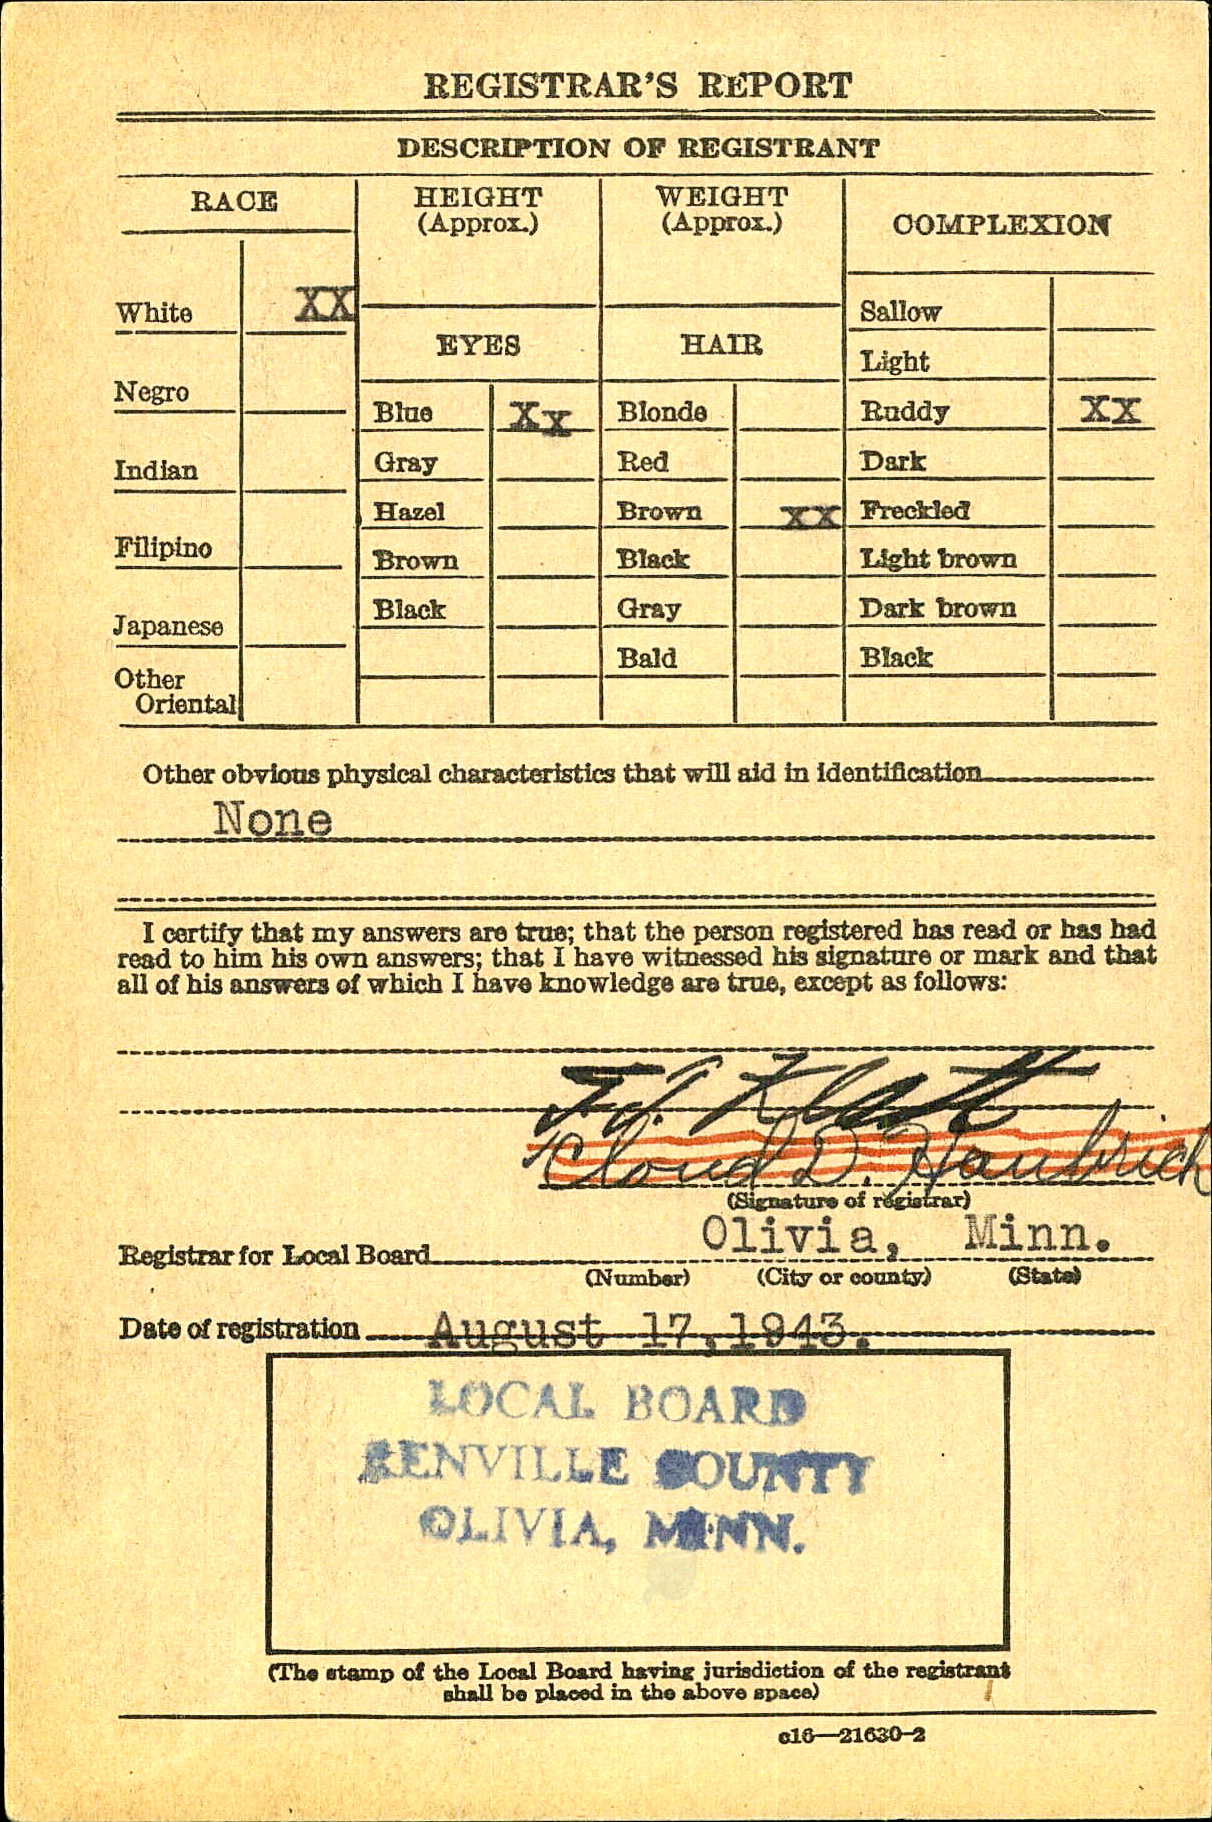 REGISTRAR'S REPORT
DESCRIPTION OF REGISTRANT
RACE
HEIGHT
(Approx.)
WEIGHT
(Approx.)
COMPLEXION
White XX
Negro
Indian
Filipino
Japanese
Other
Oriental
EYES
Blue Xx
Gray
Hazel
Brown
Black
HAIR
Blonde
Red
Brown xx
Black
Gray
Bald
Sallow
Light
Ruddy XX
Dark
Freckled
Light brown
Dark brown
Black
Other obvious physical characteristics that will aid in identification
None
I certify that my answers are true; that the person registered has read or has had
read to him his own answers; that I have witnessed his signature or mark and that
all of his answers of which I have knowledge are true, except as follows:
F. J. Klatt
Cloud D. Haubrich
(Signature of registrar)
Registrar for Local Board Olivia, Minn.
(Number) (City or county) (State)
Date of registration August 17, 1943.
LOCAL BOARD
RENVILLE COUNTY
OLIVIA, MINN.
(The stamp of the Local Board having jurisdiction of the registrant
shall be placed in the above space)
c16—21630-2